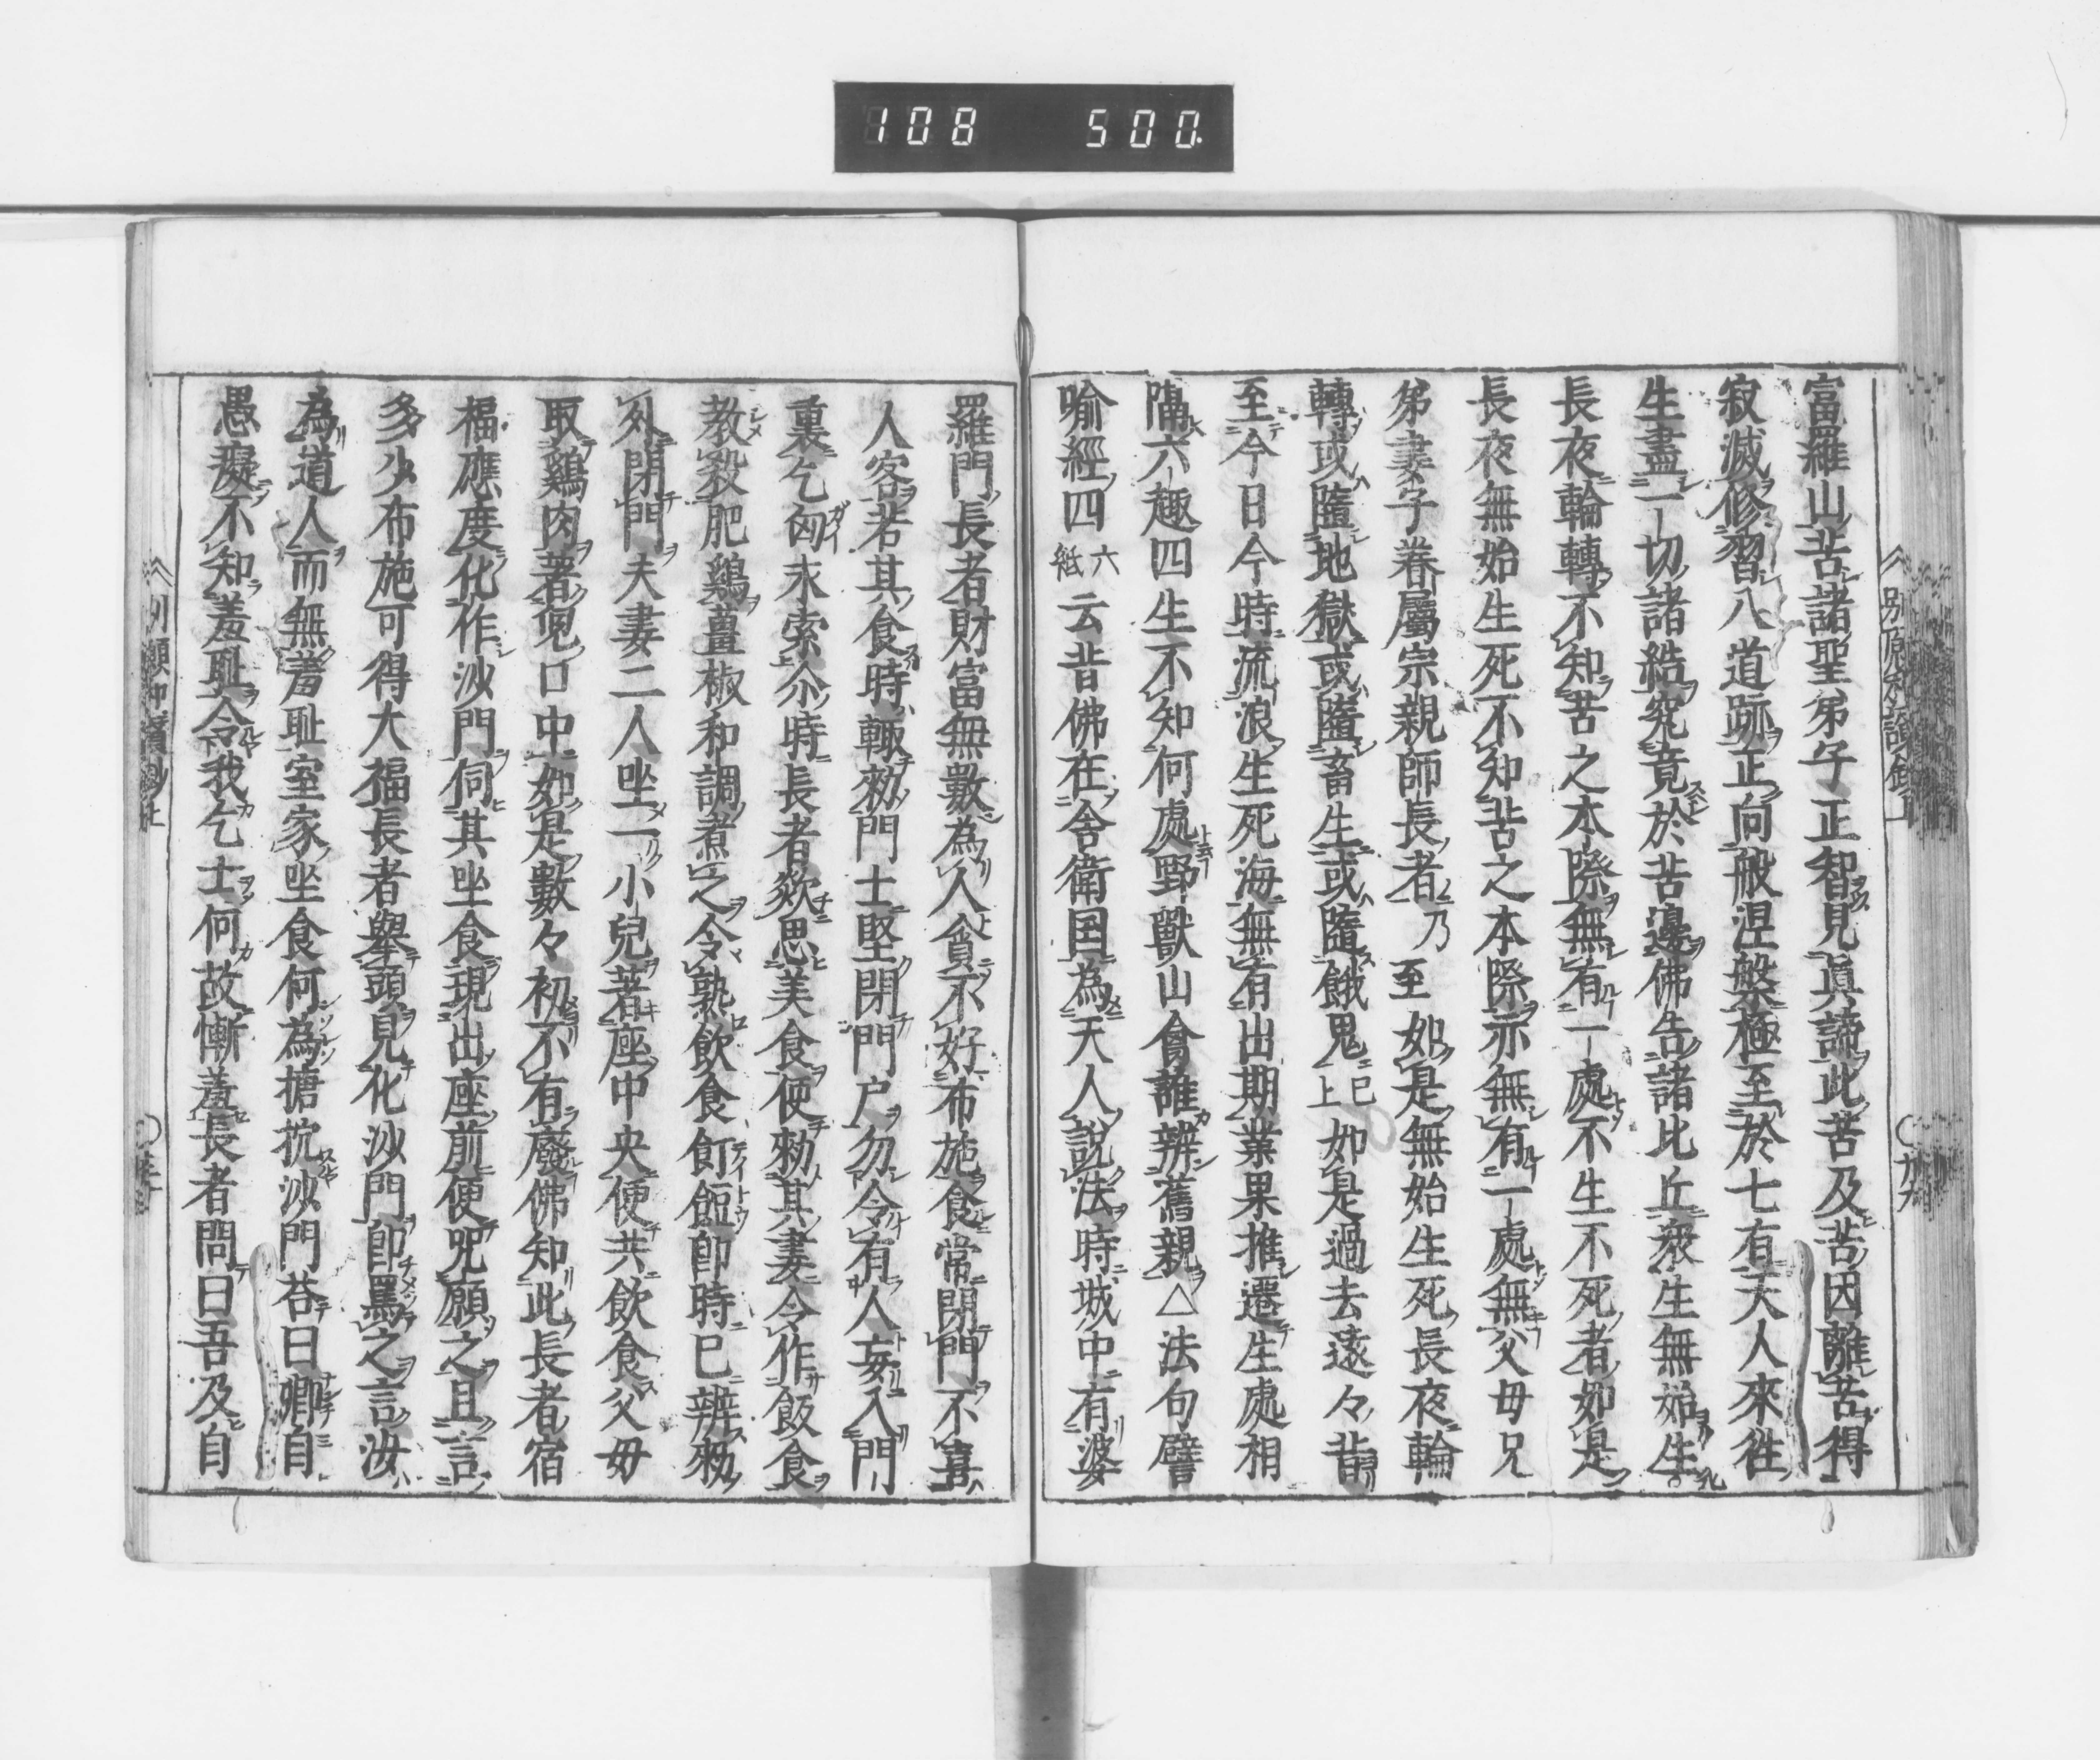 108 500.
富羅山苦諸聖弟子正智見眞諦此苦及苦因離苦得
寂滅修習八道跡正向般涅槃極至於七有天人來往
生盡一切諸結究竟於苦邊佛告諸比丘衆生無始生
長夜輪轉不知苦之本際無有一處不生不死者如是
長夜無始生死不知苦之本際亦無有一處無父母兄
弟妻子眷屬宗親師長者乃至如是無始生死長夜輪
轉或墮地獄或墮畜生或墮餓鬼已上如是過去遠々背
至今日今時流浪生死海無有出期業果推遷生處相
隔六趣四生不知何處野獸山禽誰辨舊親△法句譬
喻經四六紙云昔佛在舍衛国為天人說法時城中有婆
羅門長者財富無數為人貪不好布施食常閉門不喜
人客若其食時輙勑門士堅閉門户勿令有人妄入門
裏乞匃求索尒時長者欻思美食便勑其妻令作飯食
教殺肥鷄薑椒和調煮之令熟飲食飣餖即時已辨勑
外閉門夫妻二人坐一小兒著座中央便共飲食父母
取鷄肉著兒口中如是數々初不有廢佛知此長者宿
福應度化作沙門伺其坐食現出座前便咒願之且言
多少布施可得大福長者舉頭見化沙門即罵之言汝
為道人而無羞耻室家坐食何為搪揬沙門荅曰卿自
愚癡不知羞耻今我乞士何故慚羞長者問曰吾及自